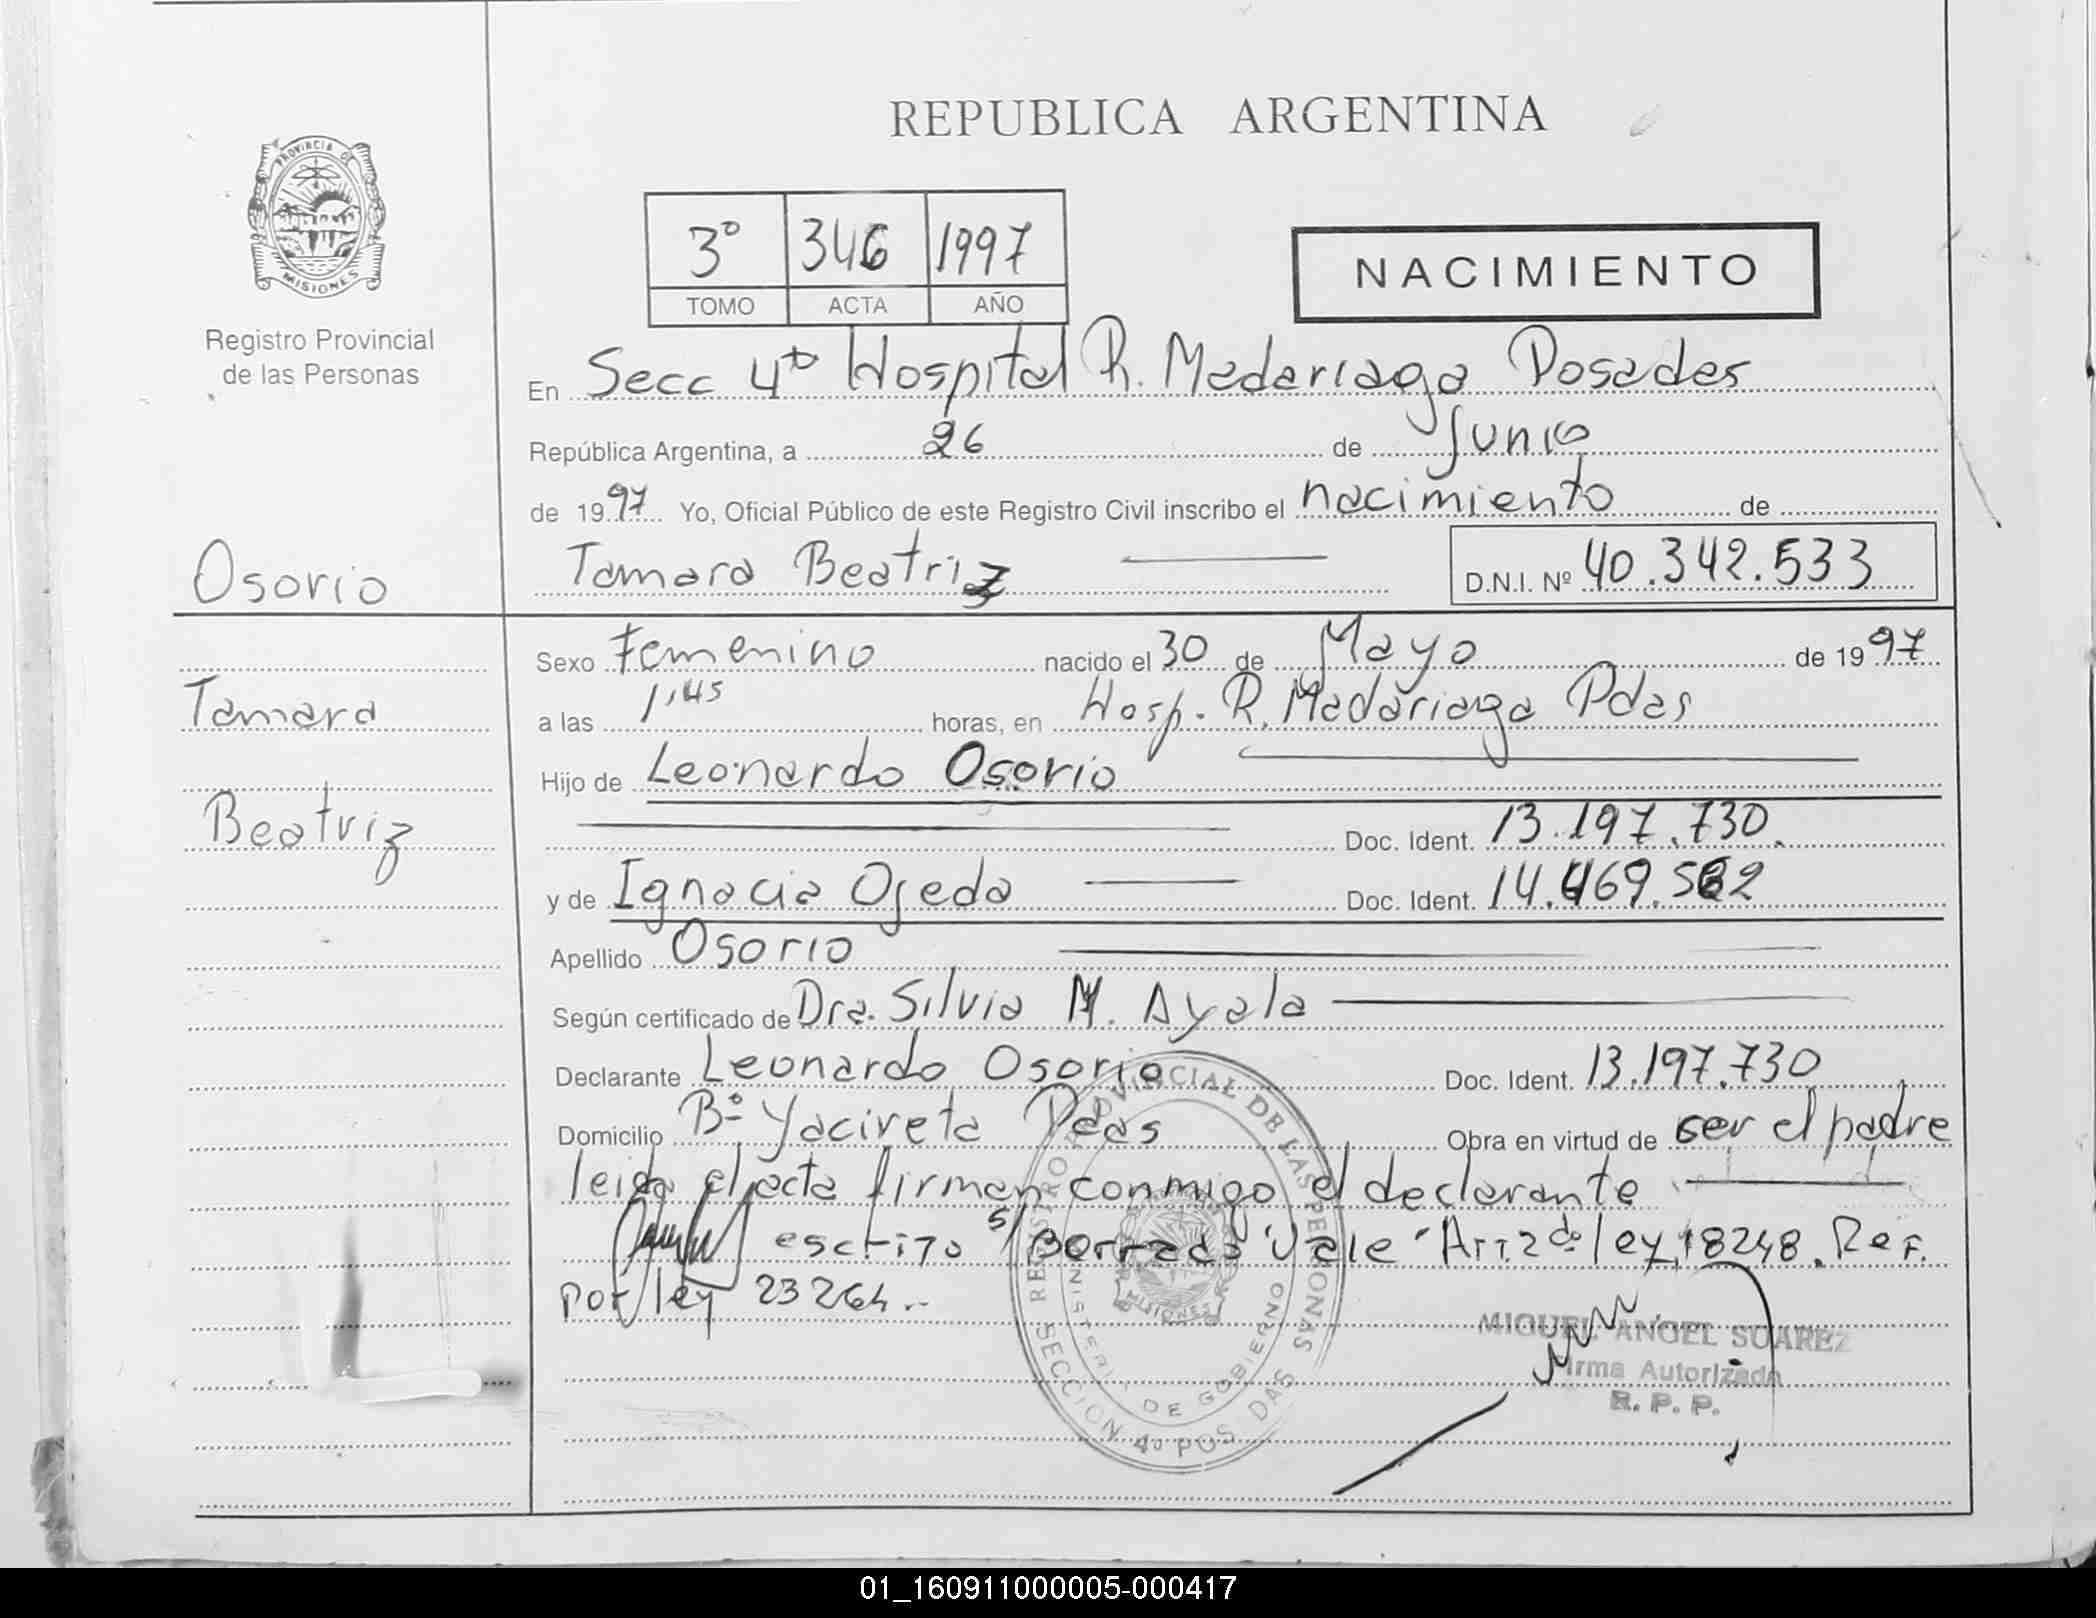 REPUBLICA ARGENTINA
PROVINCIA DE
MISIONES
Registro Provincial
de las Personas
3º 346 1997
TOMO ACTA AÑO
NACIMIENTO
En Secc 4ta Hospital R. Madariaga Posadas
República Argentina, a 26 de Junio
de 1997 Yo, Oficial Público de este Registro Civil inscribo el nacimiento de
Osorio
Tamara Beatriz D.N.I. Nº 40.342.533
Sexo Femenino nacido el 30 de Mayo de 1997
Tamara
a las 1,45 horas, en Hosp. R. Madariaga Pdas
Hijo de Leonardo Osorio
Beatriz
Doc. Ident. 13.197.730.
y de Ignacia Ojeda Doc. Ident. 14.469.
Apellido Osorio
Según certificado de Dra. Silvia M. Ayala
Declarante Leonardo Osorio Doc. Ident. 13.197.730
Domicilio Bº Yacireta Pdas Obra en virtud de ser el padre
leida el acta firman conmigo el declarante
escrito s/ Borrado Vale Art 2do ley 18248. Ref.
por ley 23264.-
REGISTRO PROVINCIAL DE LAS PERSONAS
MINISTERIO DE GOBIERNO
MISIONES
SECCION 4a POSADAS
MIGUEL ANGEL SUAREZ
Firma Autorizada
R. P. P.
01_160911000005-000417